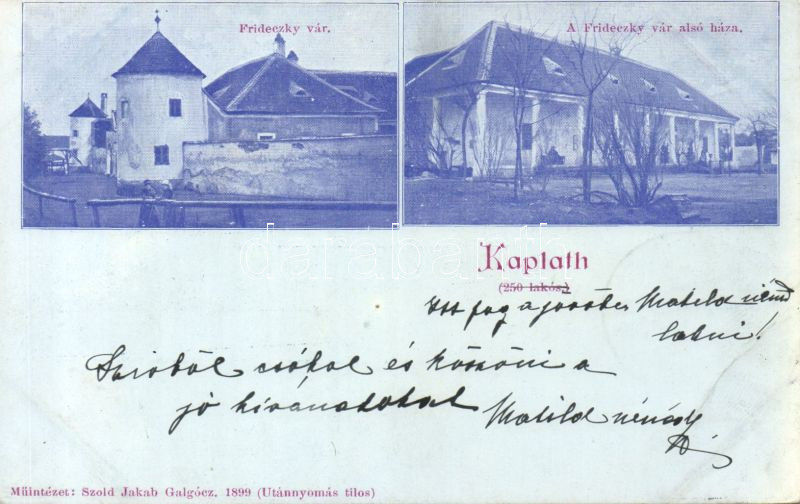 Frideczky vár.
A Frideczky vár alsó háza.
Kaplath
(250 lakós.)
Itt fog a jövőben Matild néni
latni!
Szivből csókol és köszöni a
jó kívánatokat Matild nénéd
Műintézet: Szold Jakab Galgócz. 1899 (Utánnyomás tilos)